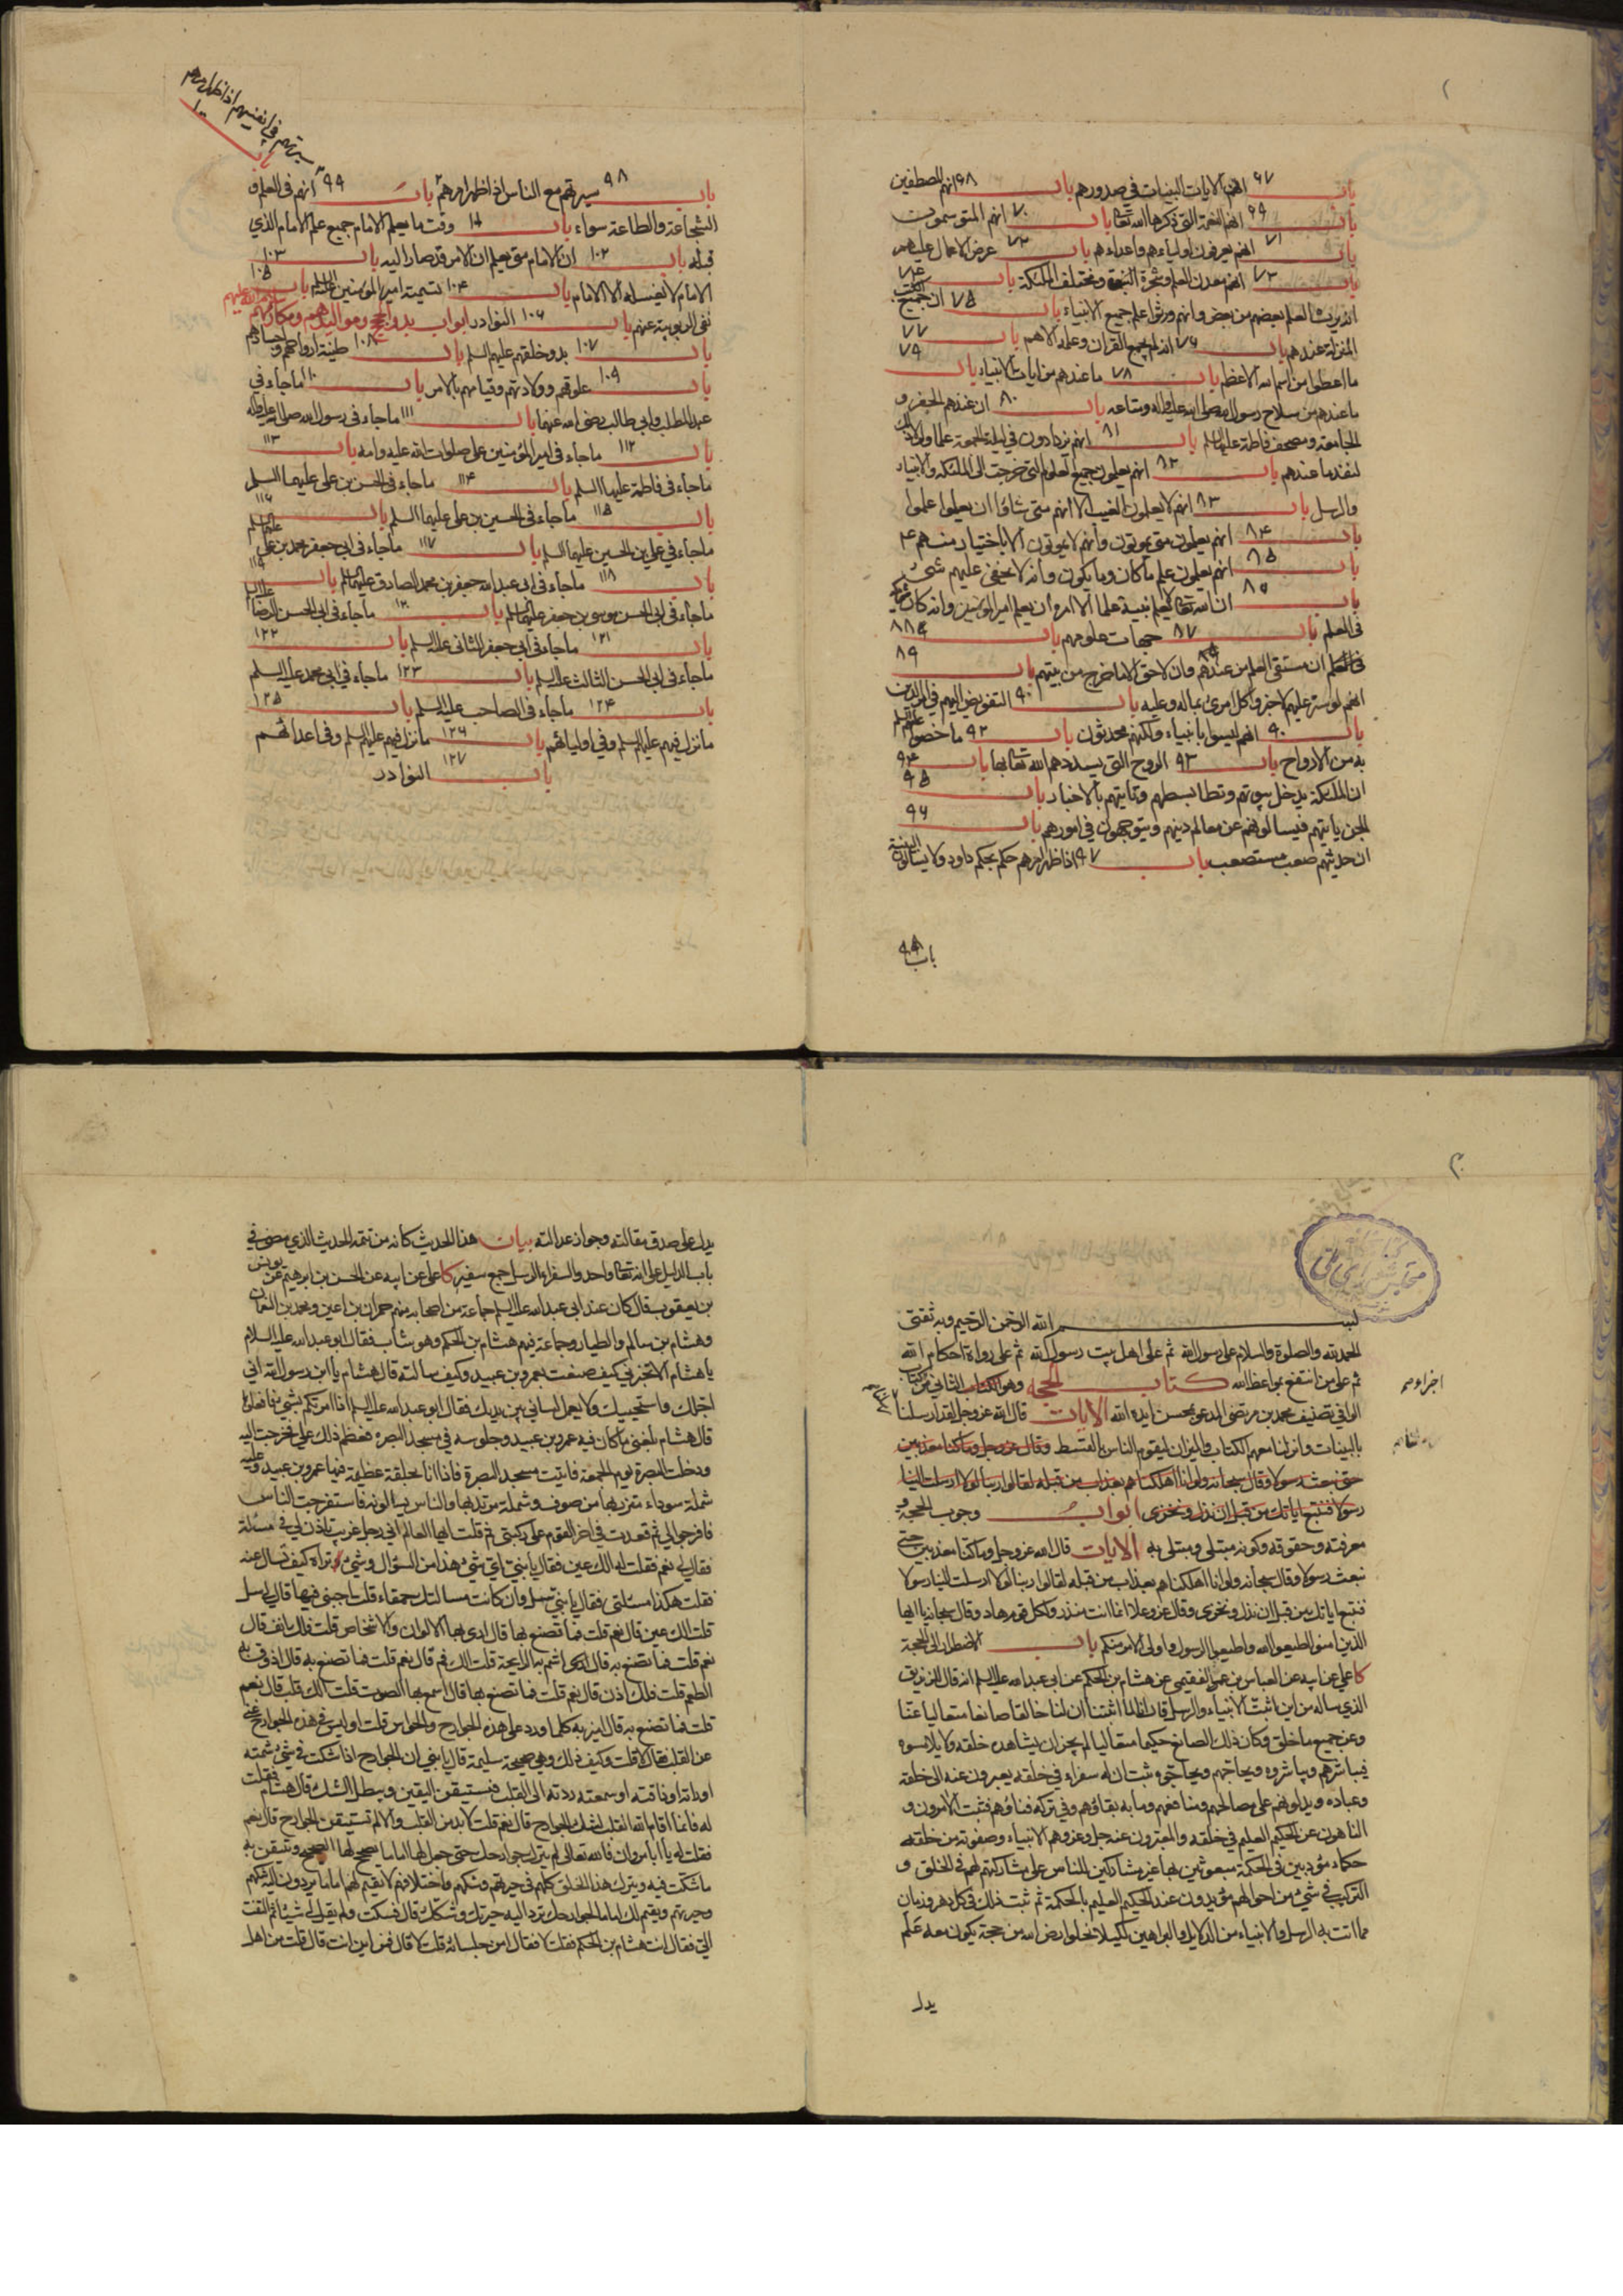 باب ٦٧ انهم الايات البينات في صدورهم باب ٦٨ انهم المصطفين
باب ٦٩ انهم النعمة التي ذكرها الله تعالى باب ٧٠ انهم المتوسمون
باب ٧١ انهم يعرفون اولياءهم واعداءهم باب ٧٢ عرض الاعمال عليهم
باب ٧٣ انهم معدن العلم وشجرة النبوة ومختلف الملئكة باب ٧٤
انه يرث العلم بعضهم من بعض وانهم ورثوا علم جميع الانبياء باب ٧٥ ان جميع الكتب
المنزلة عندهم باب ٧٦ انه لم يجمع القران وعلمه الا هم باب ٧٧
ما اعطوا من اسم الله الاعظم باب ٧٨ ما عندهم من ايات الانبياء باب ٧٩
ما عندهم من سلاح رسول الله صلى الله عليه واله ومتاعه باب ٨٠ ان عندهم الجفر و
الجامعة ومصحف فاطمة عليها السلم باب ٨١ انهم يزدادون في ليلة الجمعة علما ولولا ذلك
لنفد ما عندهم باب ٨٢ انهم يعلمون جميع العلوم التي خرجت الى الملئكة والانبياء
والرسل باب ٨٣ انهم لا يعلمون الغيب الا انهم متى شاؤا ان يعلموا علموا
باب ٨٤ انهم يعلمون متى يموتون وانهم لا يموتون الا باختيار منهم
باب ٨٥ انهم يعلمون علم ما كان وما يكون وانه لا يخفى عليهم شئ
باب ان الله تعالى لم يعلم نبيه علما الا امره ان يعلم امير المؤمنين وانه كان شريكه
في العلم باب ٨٧ جهات علومهم باب ٨٨
ان مستقى العلم من عندهم وان لا حق الا ما خرج من بيتهم باب ٨٩
انهم لو ستر عليهم لاخبروا كل امرئ بماله وعليه باب ٩٠ التفويض اليهم في امر الدين
باب انهم ليسوا بانبياء ولكنهم محدثون باب ٩٢ ما خصوا عليهم السلم
به من الارواح باب ٩٣ الروح التي يسددهم الله تعالى بها باب ٩٤
ان الملئكة تدخل بيوتهم وتطا بسطهم وتاتيهم بالاخبار باب ٩٥
الجن ياتيهم فيسالونهم عن معالم دينهم ويتوجهون في امورهم باب ٩٦
ان حديثهم صعب مستصعب باب ٩٧ اذا ظهر امرهم حكم بحكم داود ولا يسالون البينة
باب ٩٨
سيرتهم في انفسهم اذا ظهر امرهم
باب
باب ٩٨ سيرتهم مع الناس اذا ظهر امرهم باب ٩٩ انهم في العلم و
الشجاعة والطاعة سواء باب وقت ما يعلم الامام جميع علم الامام الذي
قبله باب ١٠٢ ان الامام متى يعلم ان الامر قد صار اليه باب ١٠٣
الامام لا يغسله الا الامام باب ١٠٤ تسمية امير المؤمنين عليه السلم باب ١٠٥
نفي الربوبية عنهم باب ١٠٦ النوادر ابواب بدو الحجج ومواليدهم ومكارمهم سلام الله عليهم
باب ١٠٧ بدو خلقهم عليهم السلم باب ١٠٨ طينة ارواحهم واجسادهم
باب ١٠٩ علوقهم وولادتهم وقيامهم بالامر باب ١١٠ ما جاء في
عبد المطلب وابي طالب رضي الله عنهما باب ١١١ ما جاء في رسول الله صلى الله عليه واله
باب ١١٢ ما جاء في امير المؤمنين على صلوات الله عليه وامه باب ١١٣
ما جاء في فاطمة عليها السلم باب ١١٤ ما جاء في الحسن بن على عليهما السلم
باب ١١٥ ما جاء في الحسين بن على عليهما السلم باب ١١٦
ما جاء في علي بن الحسين عليهما السلم باب ١١٧ ما جاء في ابي جعفر محمد بن على عليهما السلم
باب ١١٨ ما جاء في ابي عبد الله جعفر بن محمد الصادق عليهما السلم باب ١١٩
ما جاء في ابي الحسن موسى بن جعفر عليهما السلم باب ١٢٠ ما جاء في ابي الحسن الرضا عليه السلم
باب ١٢١ ما جاء في ابي جعفر الثاني عليه السلم باب ١٢٢
ما جاء في ابي الحسن الثالث عليه السلم باب ١٢٣ ما جاء في ابي محمد عليه السلم
باب ١٢٤ ما جاء في الصاحب عليه السلم باب ١٢٥
ما نزل فيهم عليهم السلم وفي اوليائهم باب ١٢٦ ما نزل فيهم عليهم السلم وفي اعدائهم
باب ١٢٧ النوادر
بسم الله الرحمن الرحيم وبه ثقتي
الحمد لله والصلوة والسلام على رسول الله ثم على اهل بيت رسول الله ثم على رواة احكام الله
ثم على من انتفع بمواعظ الله كتاب الحجة وهو الكتاب الثاني من كتاب
الوافي تصنيف محمد بن مرتضى المدعو بمحسن ايده الله الايات قال الله عز وجل لقد ارسلنا
بالبينات وانزلنا معهم الكتاب والميزان ليقوم الناس بالقسط وقال عز وجل وما كنا معذبين
حتى نبعث رسولا وقال سبحانه ولو انا اهلكناهم بعذاب من قبله لقالوا ربنا لولا ارسلت الينا
رسولا فنتبع اياتك من قبل ان نذل ونخزى ابواب وجوب الحجة و
معرفته وحقوقه وكونه مبتلى ومبتلى به الايات قال الله عز وجل وما كنا معذبين حتى
نبعث رسولا وقال سبحانه ولو انا اهلكناهم بعذاب من قبله لقالوا ربنا لولا ارسلت الينا رسولا
فنتبع اياتك من قبل ان نذل ونخزى وقال عز وعلا انما انت منذر ولكل قوم هاد وقال سبحانه يا ايها
الذين امنوا اطيعوا الله واطيعوا الرسول واولى الامر منكم باب الاضطرار الى الحجة
كا علي عن ابيه عن العباس بن عمرو الفقيمي عن هشام بن الحكم عن ابي عبد الله عليه السلم انه قال للزنديق
الذي ساله من اين اثبت الانبياء والرسل قال انا لما اثبتنا ان لنا خالقا صانعا متعاليا عنا
وعن جميع ما خلق وكان ذلك الصانع حكيما متعاليا لم يجز ان يشاهده خلقه ولا يلامسوه
فيباشرهم ويباشروه ويحاجهم ويحاجوه ثبت ان له سفراء في خلقه يعبرون عنه الى خلقه
وعباده ويدلونهم على مصالحهم ومنافعهم وما به بقاؤهم وفي تركه فناؤهم فثبت الامرون و
الناهون عن الحكيم العليم في خلقه والمعبرون عنه جل وعز وهم الانبياء وصفوته من خلقه
حكماء مؤدبين في الحكمة مبعوثين بها غير مشاركين للناس على مشاركتهم لهم في الخلق و
التركيب في شئ من احوالهم مؤيدون عند الحكيم العليم بالحكمة ثم ثبت ذلك في كل دهر وزمان
مما اتت به الرسل والانبياء من الدلايل والبراهين لكيلا تخلوا ارض الله من حجة يكون معه علم
يدل
يدل على صدق مقالته وجواز عدالته بيان هذا الحديث كانه من تتمة الحديث الذي مضى في
باب الدليل على انه تعالى واحد والسفراء الرسل جمع سفير كا علي عن ابيه عن الحسن بن ابرهيم عن يونس
بن يعقوب قال كان عند ابي عبد الله عليه السلم جماعة من اصحابه منهم حمران بن اعين ومحمد بن النعمان
وهشام بن سالم والطيار وجماعة فيهم هشام بن الحكم وهو شاب فقال ابو عبد الله عليه السلام
يا هشام الا تخبرني كيف صنعت بعمرو بن عبيد وكيف سالته قال هشام يا ابن رسول الله اني
اجلك واستحييك ولا يعمل لساني بين يديك فقال ابو عبد الله عليه السلم اذا امرتكم بشئ فافعلوا
قال هشام بلغني ما كان فيه عمرو بن عبيد وجلوسه في مسجد البصرة فعظم ذلك علي فخرجت اليه
ودخلت البصرة يوم الجمعة فاتيت مسجد البصرة فاذا انا بحلقة عظيمة فيها عمرو بن عبيد وعليه
شملة سوداء متزر بها من صوف وشملة مرتد بها والناس يسالونه فاستفرجت الناس
فافرجوا لي ثم قعدت في اخر القوم على ركبتي ثم قلت ايها العالم اني رجل غريب تاذن لي في مسئلة
فقال لي نعم فقلت له الك عين فقال يا بني اي شئ هذا من السؤال وشئ تراه كيف تسال عنه
فقلت هكذا مسئلتي فقال يا بني سل وان كانت مسالتك حمقاء قلت اجبني فيها قال لي سل
قلت الك عين قال نعم قلت فما تصنع بها قال ارى بها الالوان والاشخاص قلت فلك انف قال
نعم قلت فما تصنع به قال اشم به الرايحة قلت الك فم قال نعم قلت فما تصنع به قال اذوق به
الطعم قلت فلك اذن قال نعم قلت فما تصنع بها قال اسمع بها الصوت قلت الك قلب قال نعم
قلت فما تصنع به قال اميز به كلما ورد على هذه الجوارح والحواس قلت اوليس في هذه الجوارح غنى
عن القلب فقال لا قلت وكيف ذلك وهي صحيحة سليمة قال يا بني ان الجوارح اذا شكت في شئ شمته
او راته او ذاقته او سمعته ردته الى القلب فتستيقن اليقين ويبطل الشك قال هشام فقلت
له فانما اقام الله القلب لشك الجوارح قال نعم قلت لا بد من القلب والا لم تستيقن الجوارح قال نعم
فقلت له يا ابا مروان فالله تعالى لم يترك جوارحك حتى جعل لها اماما يصحح لها الصحيح وتيقن به
ما شكت فيه ويترك هذا الخلق كلهم في حيرتهم وشكهم واختلافهم لا يقيم لهم اماما يردون اليه شكهم
وحيرتهم ويقيم لك اماما لجوارحك ترد اليه حيرتك وشكك قال فسكت ولم يقل لي شيئا ثم التفت
الي فقال انت هشام بن الحكم فقلت لا فقال امن جلسائه قلت لا قال فمن اين انت قال قلت من اهل